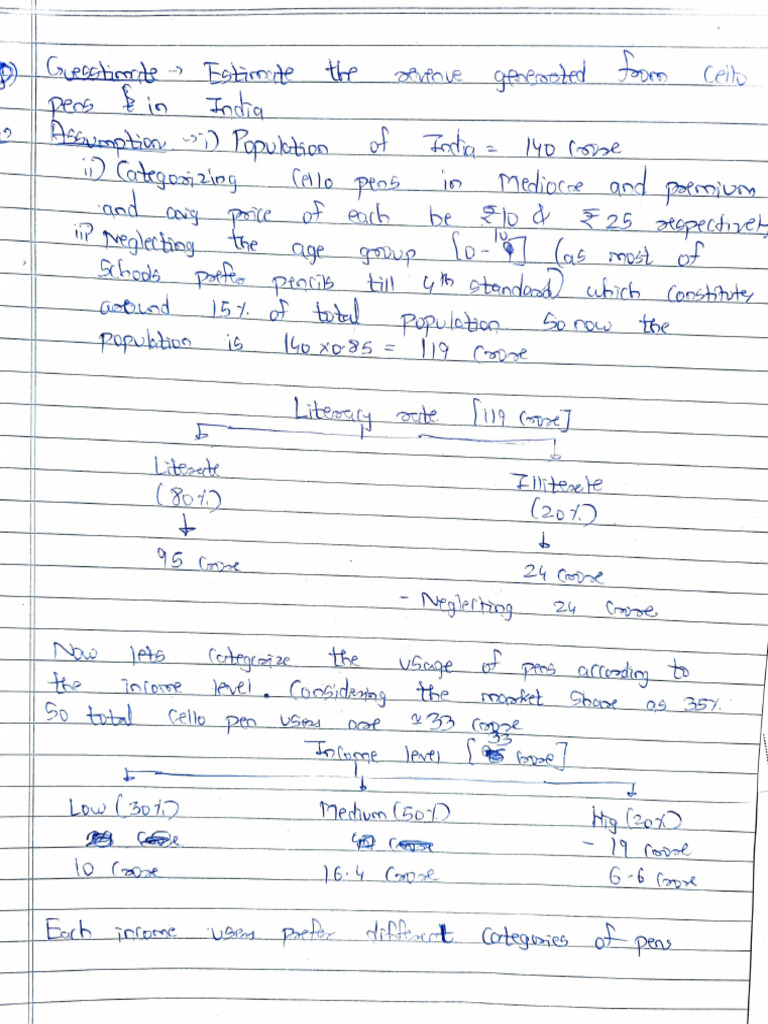 Guesstimate → Estimate the revenue generated from Cello
pens in India
Assumption → i) Population of India = 140 Crore
ii) Categorizing Cello pens in Mediocre and premium
and avg price of each be ₹10 & ₹25 respectively
iii) Neglecting the age group [0-10] (as most of
Schools prefer pencils till 4th standard) which constitutes
around 15% of total population so now the
population is 140 x 0.85 = 119 Crore
Literacy rate [119 Crore]
Literate Illiterate
(80%) (20%)
95 Crore 24 Crore
- Neglecting 24 Crore
Now lets categorize the usage of pens according to
the income level. Considering the market share as 35%.
So total Cello pen users are ≈ 33 Crore
Income level [33 Crore]
Low (30%) Medium (50%) Hig (20%)
- 19 Crore
10 Crore 16.4 Crore 6.6 Crore
Each income users prefer different Categories of pens